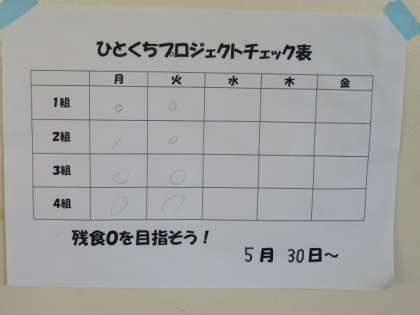 ひとくちプロジェクトチェック表
月 火 水 木 金
1組 ○ ○
2組 ○
3組 ○ ○
4組 ○ ○
残食0を目指そう！
5月 30日～